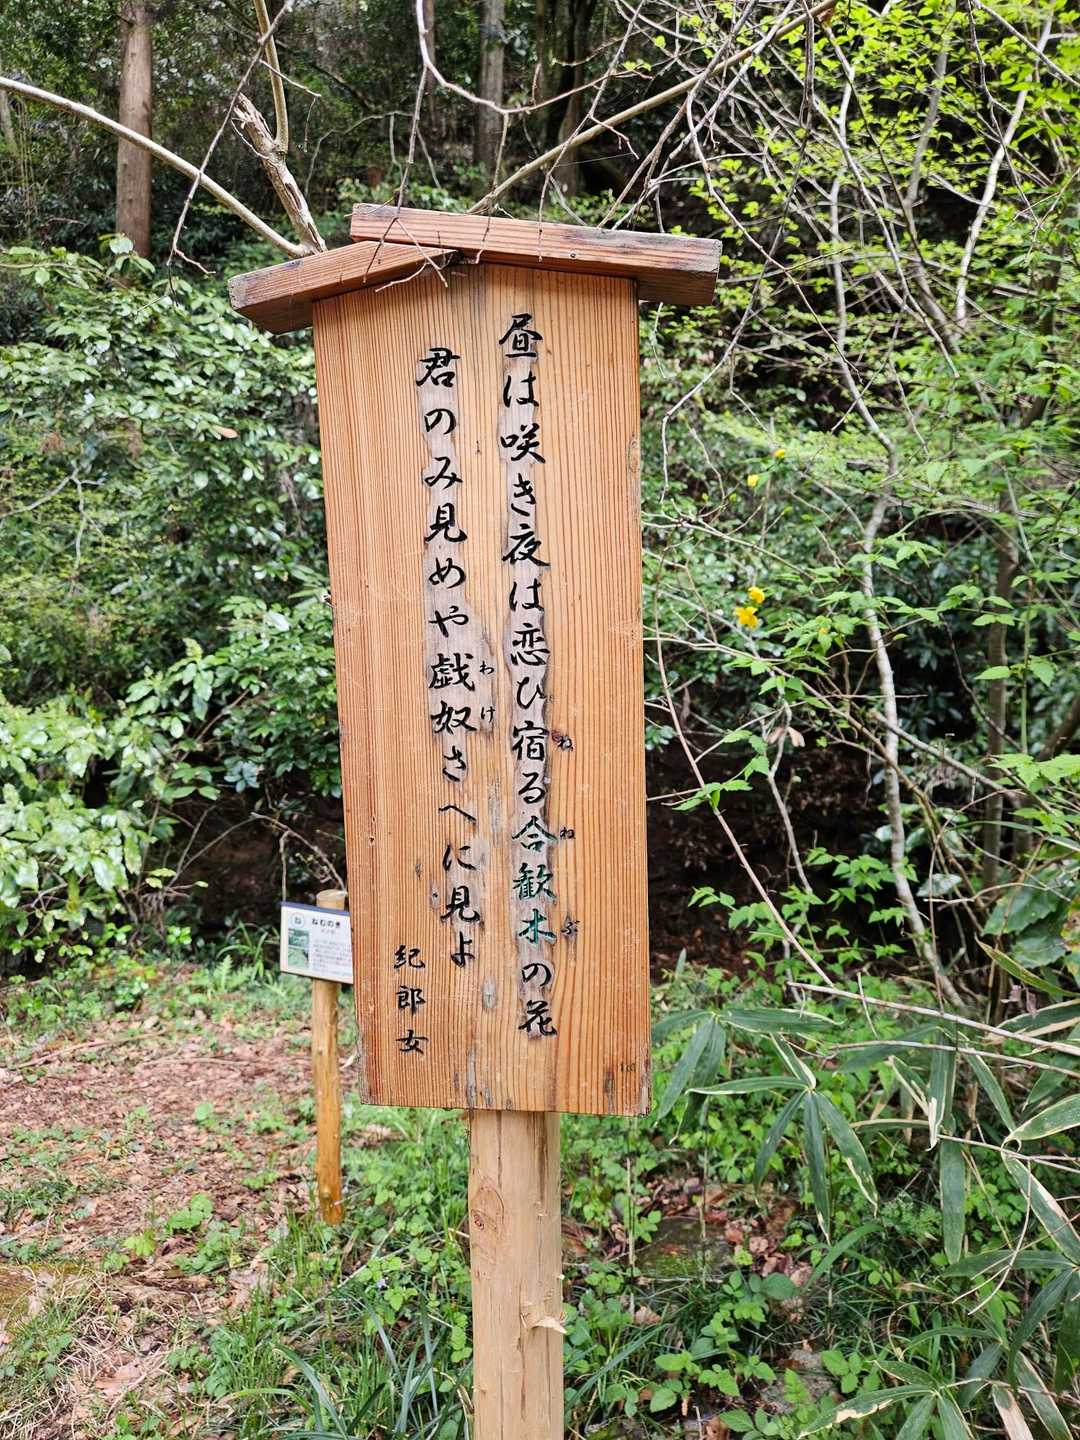 昼は咲き夜は恋ひ宿る合歓木の花
ね
ねぶ
君のみ見めや戯奴さへに見よ
わけ
紀郎女
ね
ねむのき